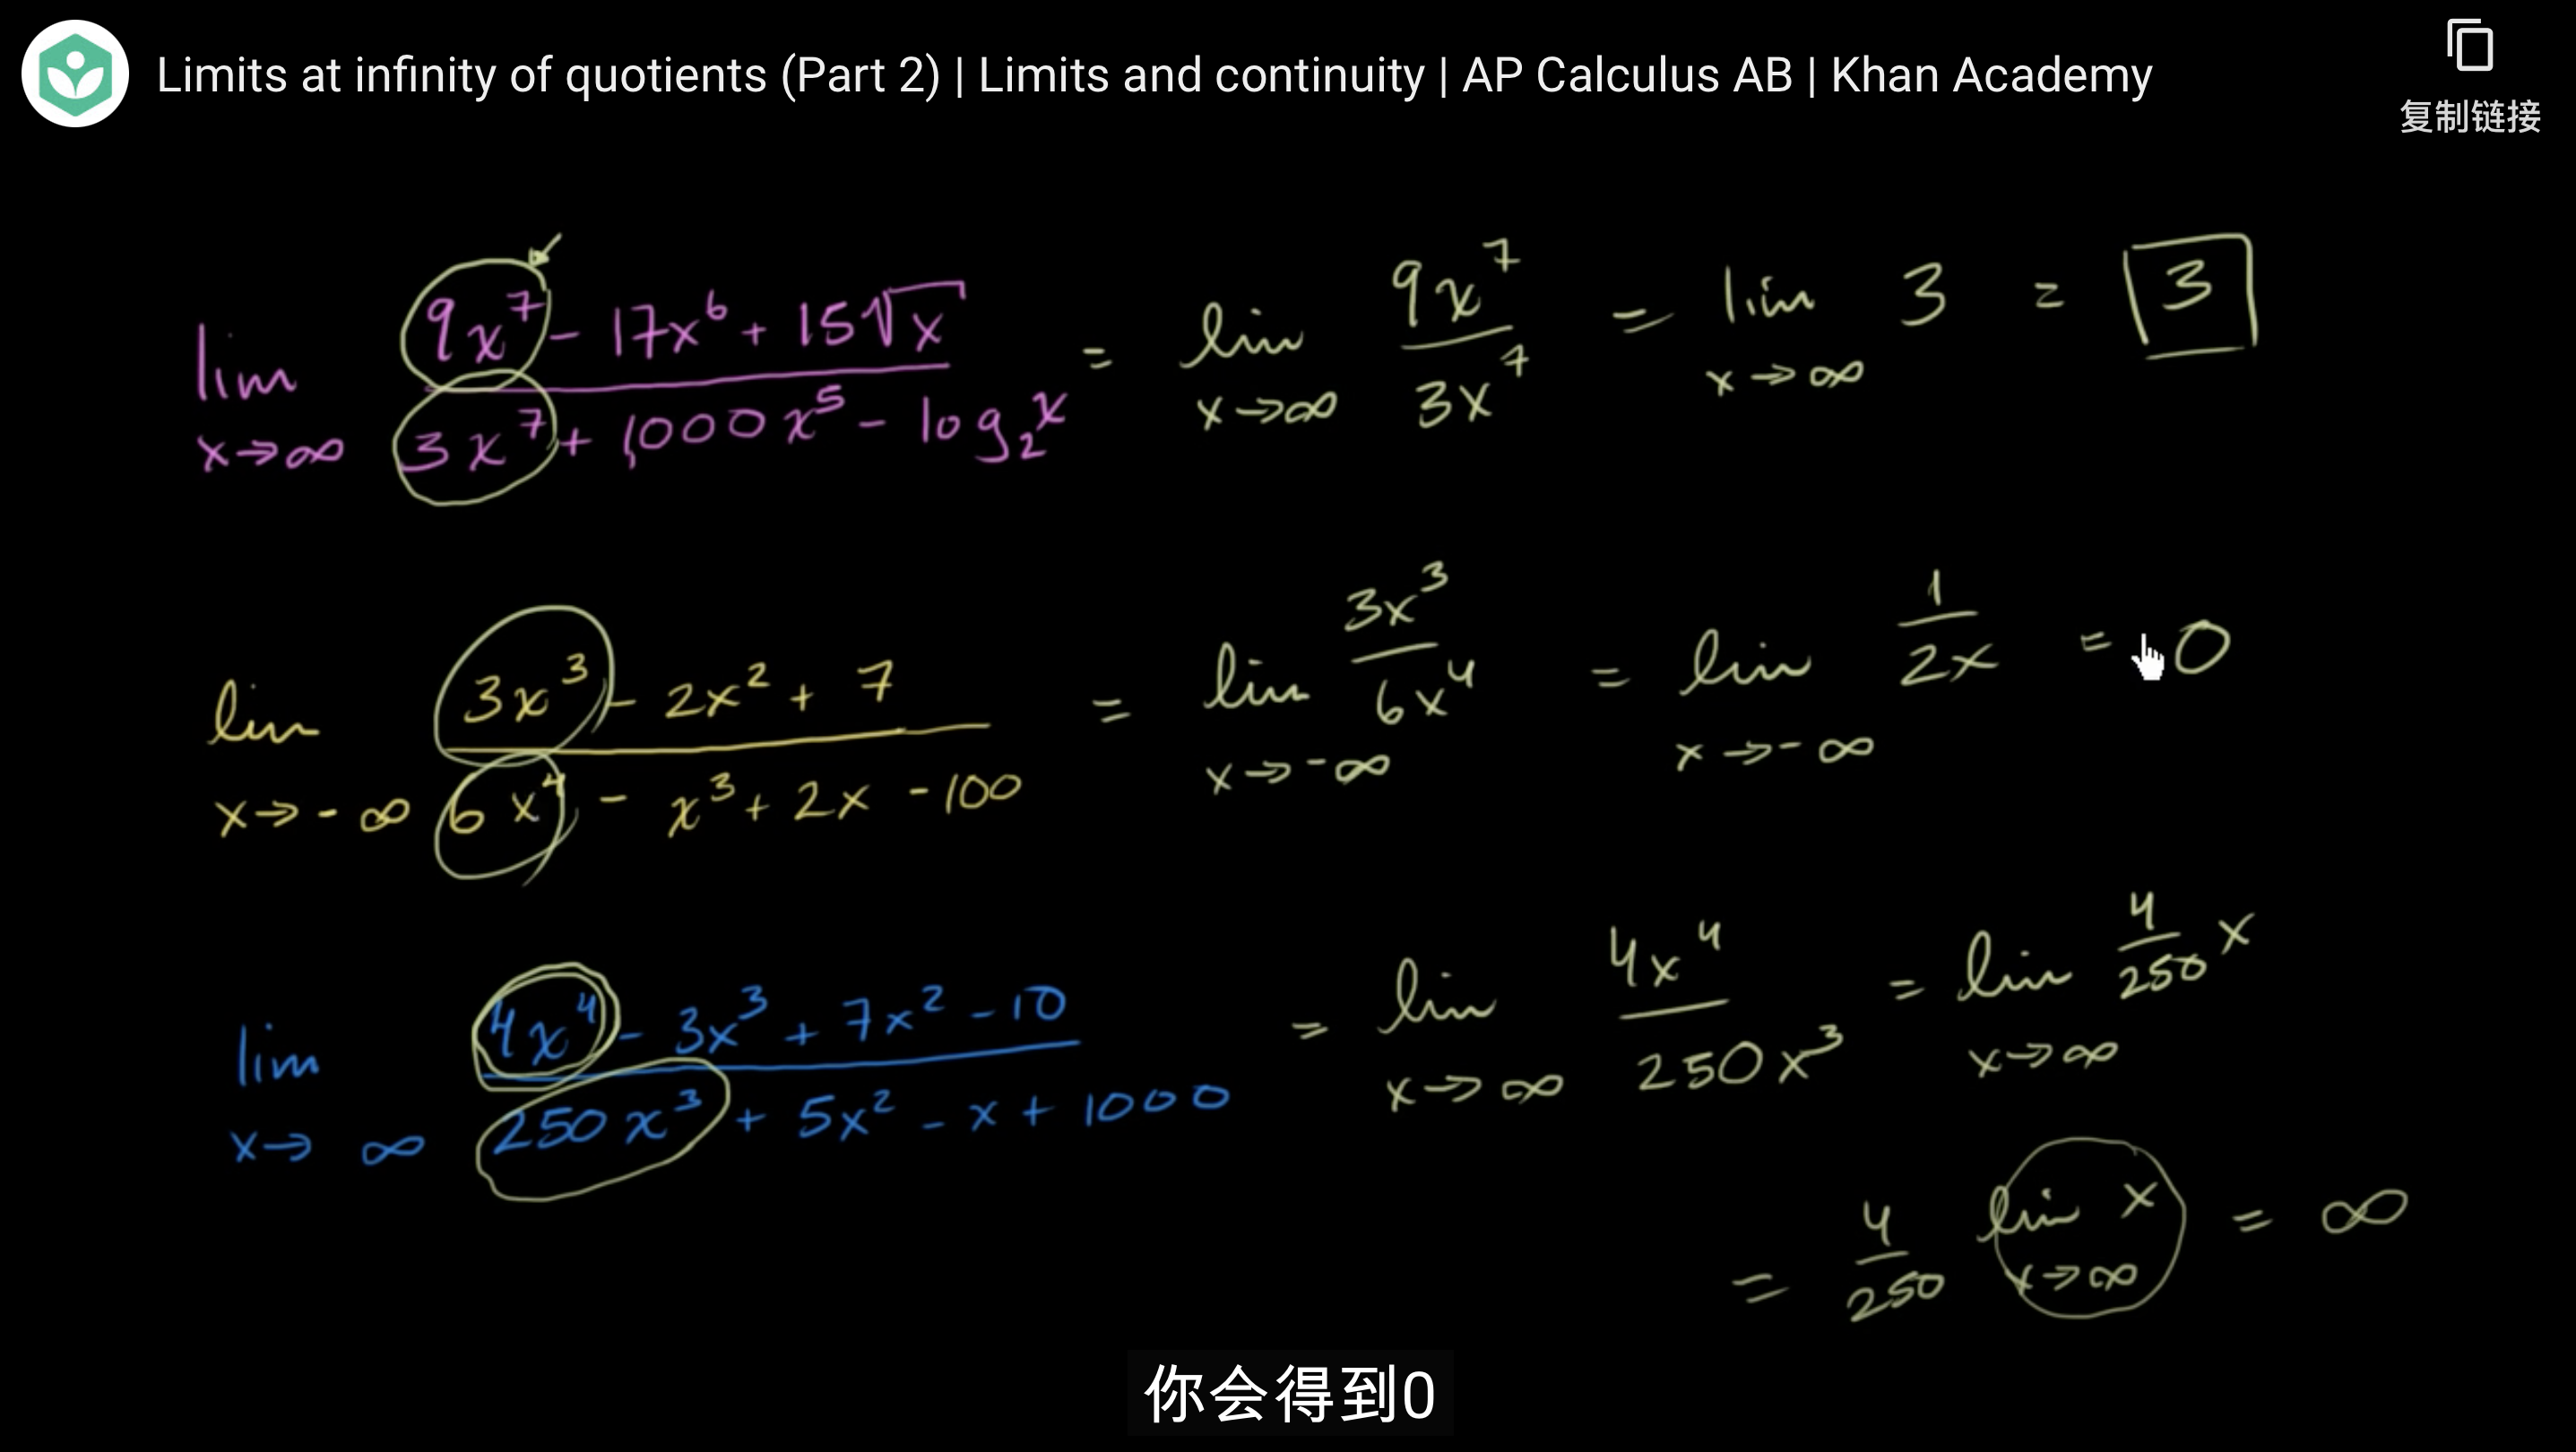 Limits at infinity of quotients (Part 2) | Limits and continuity | AP Calculus AB | Khan Academy
复制链接
lim x→∞ (9x⁷ - 17x⁶ + 15√x) / (3x⁷ + 1,000x⁵ - log₂x) = lim x→∞ 9x⁷/3x⁷ = lim x→∞ 3 = 3
lim x→-∞ (3x³ - 2x² + 7) / (6x⁴ - x³ + 2x - 100) = lim x→-∞ 3x³/6x⁴ = lim x→-∞ 1/2x = 0
lim x→∞ (4x⁴ - 3x³ + 7x² - 10) / (250x³ + 5x² - x + 1000) = lim x→∞ 4x⁴/250x³ = lim x→∞ 4/250 x
= 4/250 lim x→∞ x = ∞
你会得到0